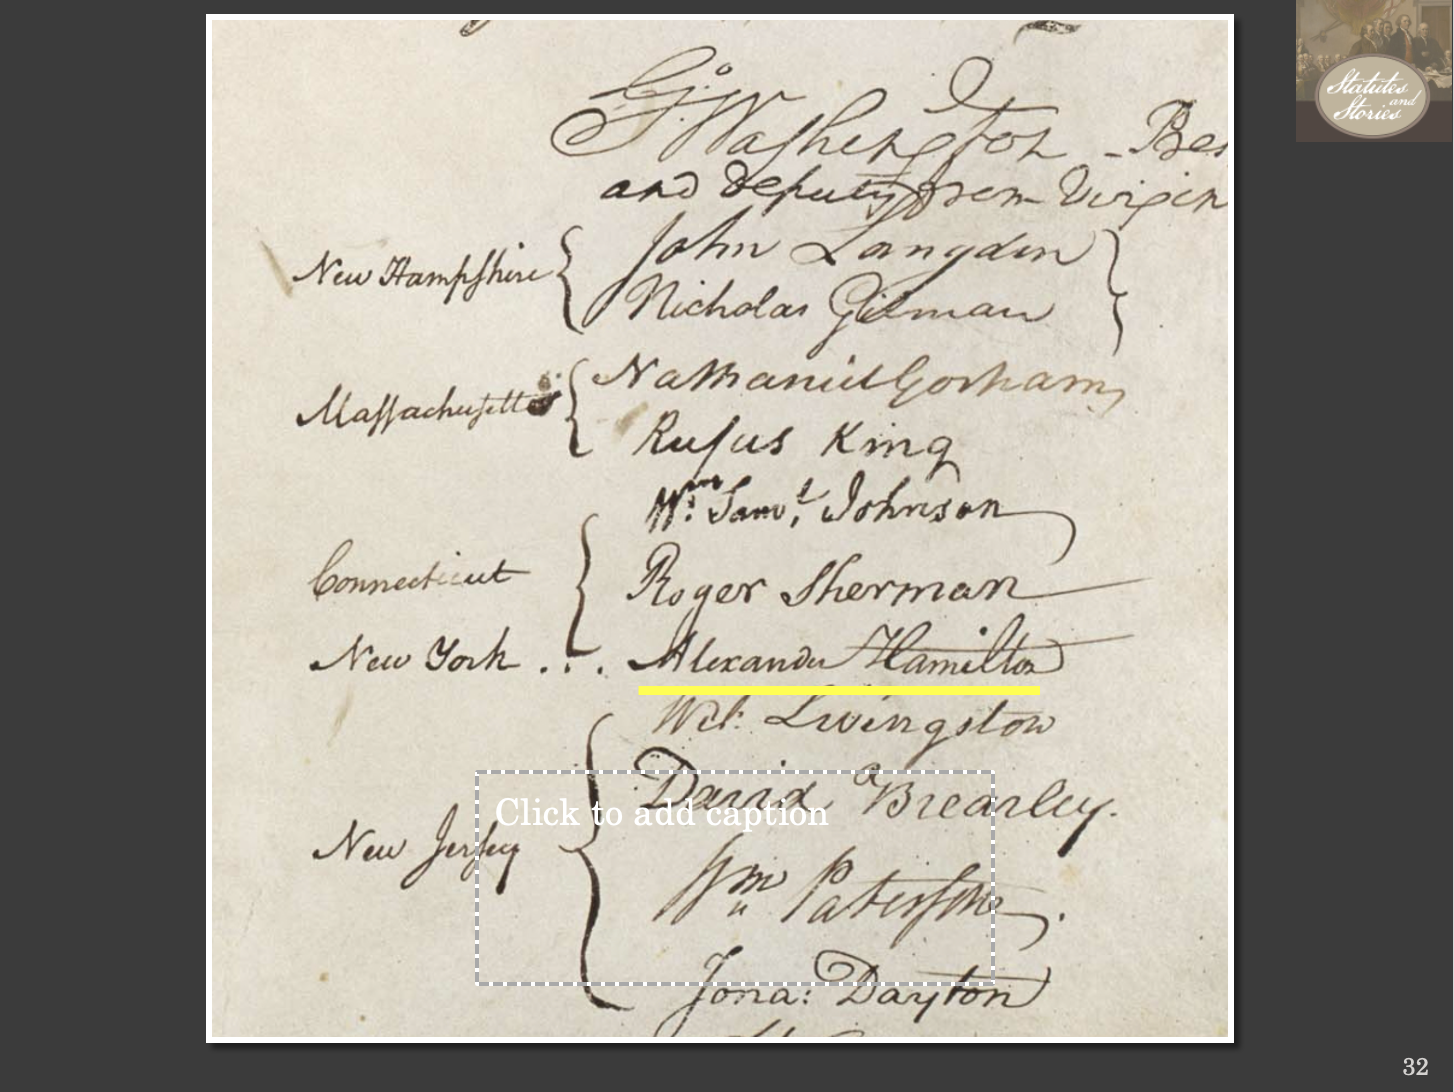 Go: Washington - Pres
and deputy from Virgin
New Hampshire
John Langdon
Nicholas Gilman
Massachusetts
Nathaniel Gorham
Rufus King
Connecticut
Wm: Saml. Johnson
Roger Sherman
New York . . .
Alexander Hamilton
New Jersey
Wil: Livingston
David Brearley.
Wm Paterson.
Jona: Dayton
Click to add caption
Statutes
and
Stories
32